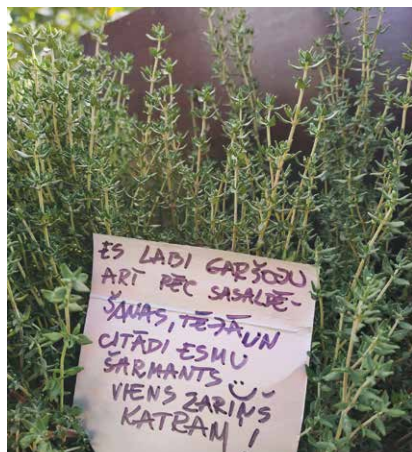 ES LABI GARŠOJU
ARĪ PĒC SASALDĒ-
ŠANAS, TĒJĀ, UN
CITĀDI ESMU
ŠARMANTS Ü
VIENS ZARIŅŠ
KATRAM !